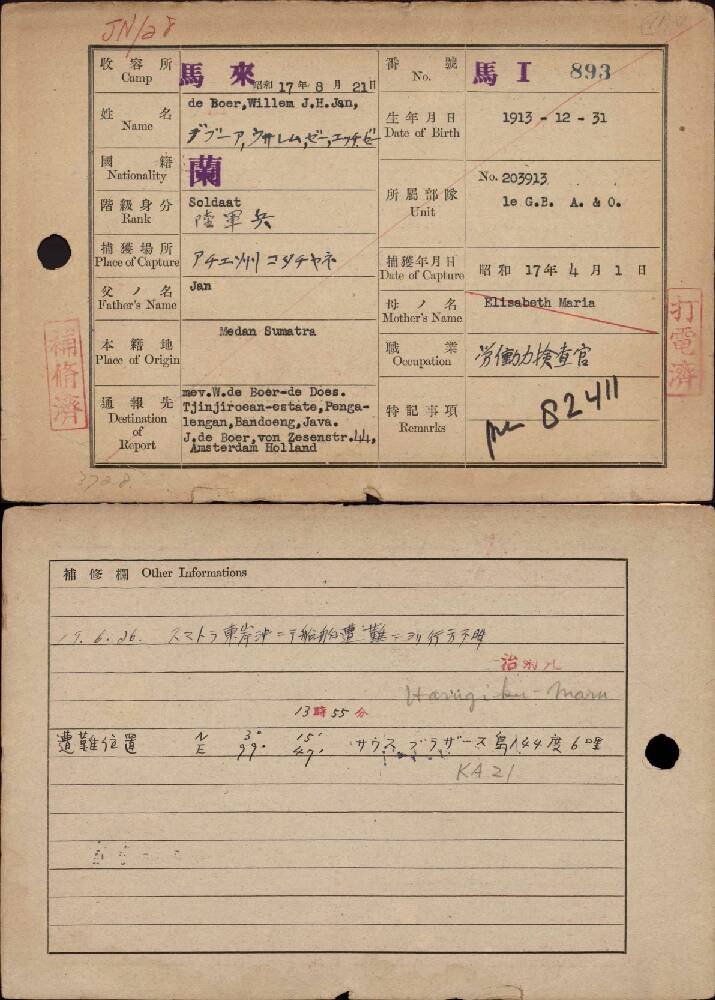 JN/28
收容所 Camp 馬來 昭和17年8月21日
番號 No. 馬I 893
姓名 Name de Boer,Willem J.H.Jan,
デブーア,ウヰレム,ゼー,エッチ,ゼー
生年月日 Date of Birth 1913 - 12 - 31
國籍 Nationality 蘭
階級身分 Rank Soldaat
陸軍兵
所屬部隊 Unit No. 203913
1e G.B. A. & O.
捕獲場所 Place of Capture アチエ州コタチヤネ
捕獲年月日 Date of Capture 昭和17年4月1日
父ノ名 Father's Name Jan
母ノ名 Mother's Name Elisabeth Maria
本籍地 Place of Origin Medan Sumatra
職業 Occupation 労働力検査官
通報先 Destination of Report mev.W.de Boer-de Does.
Tjinjiroean-estate,Penga-
lengan,Bandoeng,Java.
J.de Boer,von Zesenstr.44,
Amsterdam Holland
特記事項 Remarks 82411
補修濟
打電濟
3728
補修欄 Other Informations
19.6.26. スマトラ東岸沖ニテ船舶遭難ニヨリ行方不明
治列ル
Harugiku-Maru
13時55分
遭難位置 N 3° 15'
E 99° 47' サウスブラザース島144度6哩
KA 21